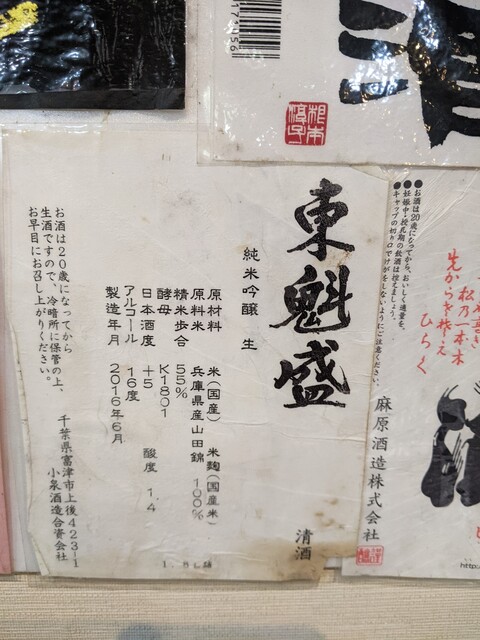 東魁盛
純米吟醸 生
原材料 米(国産) 米麹(国産米)
原料米 兵庫県産山田錦 100%
精米歩合 55%
酵母 K1801
日本酒度 +5 酸度 1.4
アルコール 16度
製造年月 2016年6月
清酒
1.8L詰
お酒は20歳になってから
生酒ですので、冷暗所に保管の上、
お早目にお召し上がりください。
千葉県富津市上後423-1
小泉酒造合資会社
●お酒は20歳になってから、おいしく適量を。
●妊娠中・授乳期の飲酒は控えましょう。
●キャップの切り口でけがをしないようにご注意ください。
麻原酒造株式会社
松乃一本木
先から梅え
ひらく
http: